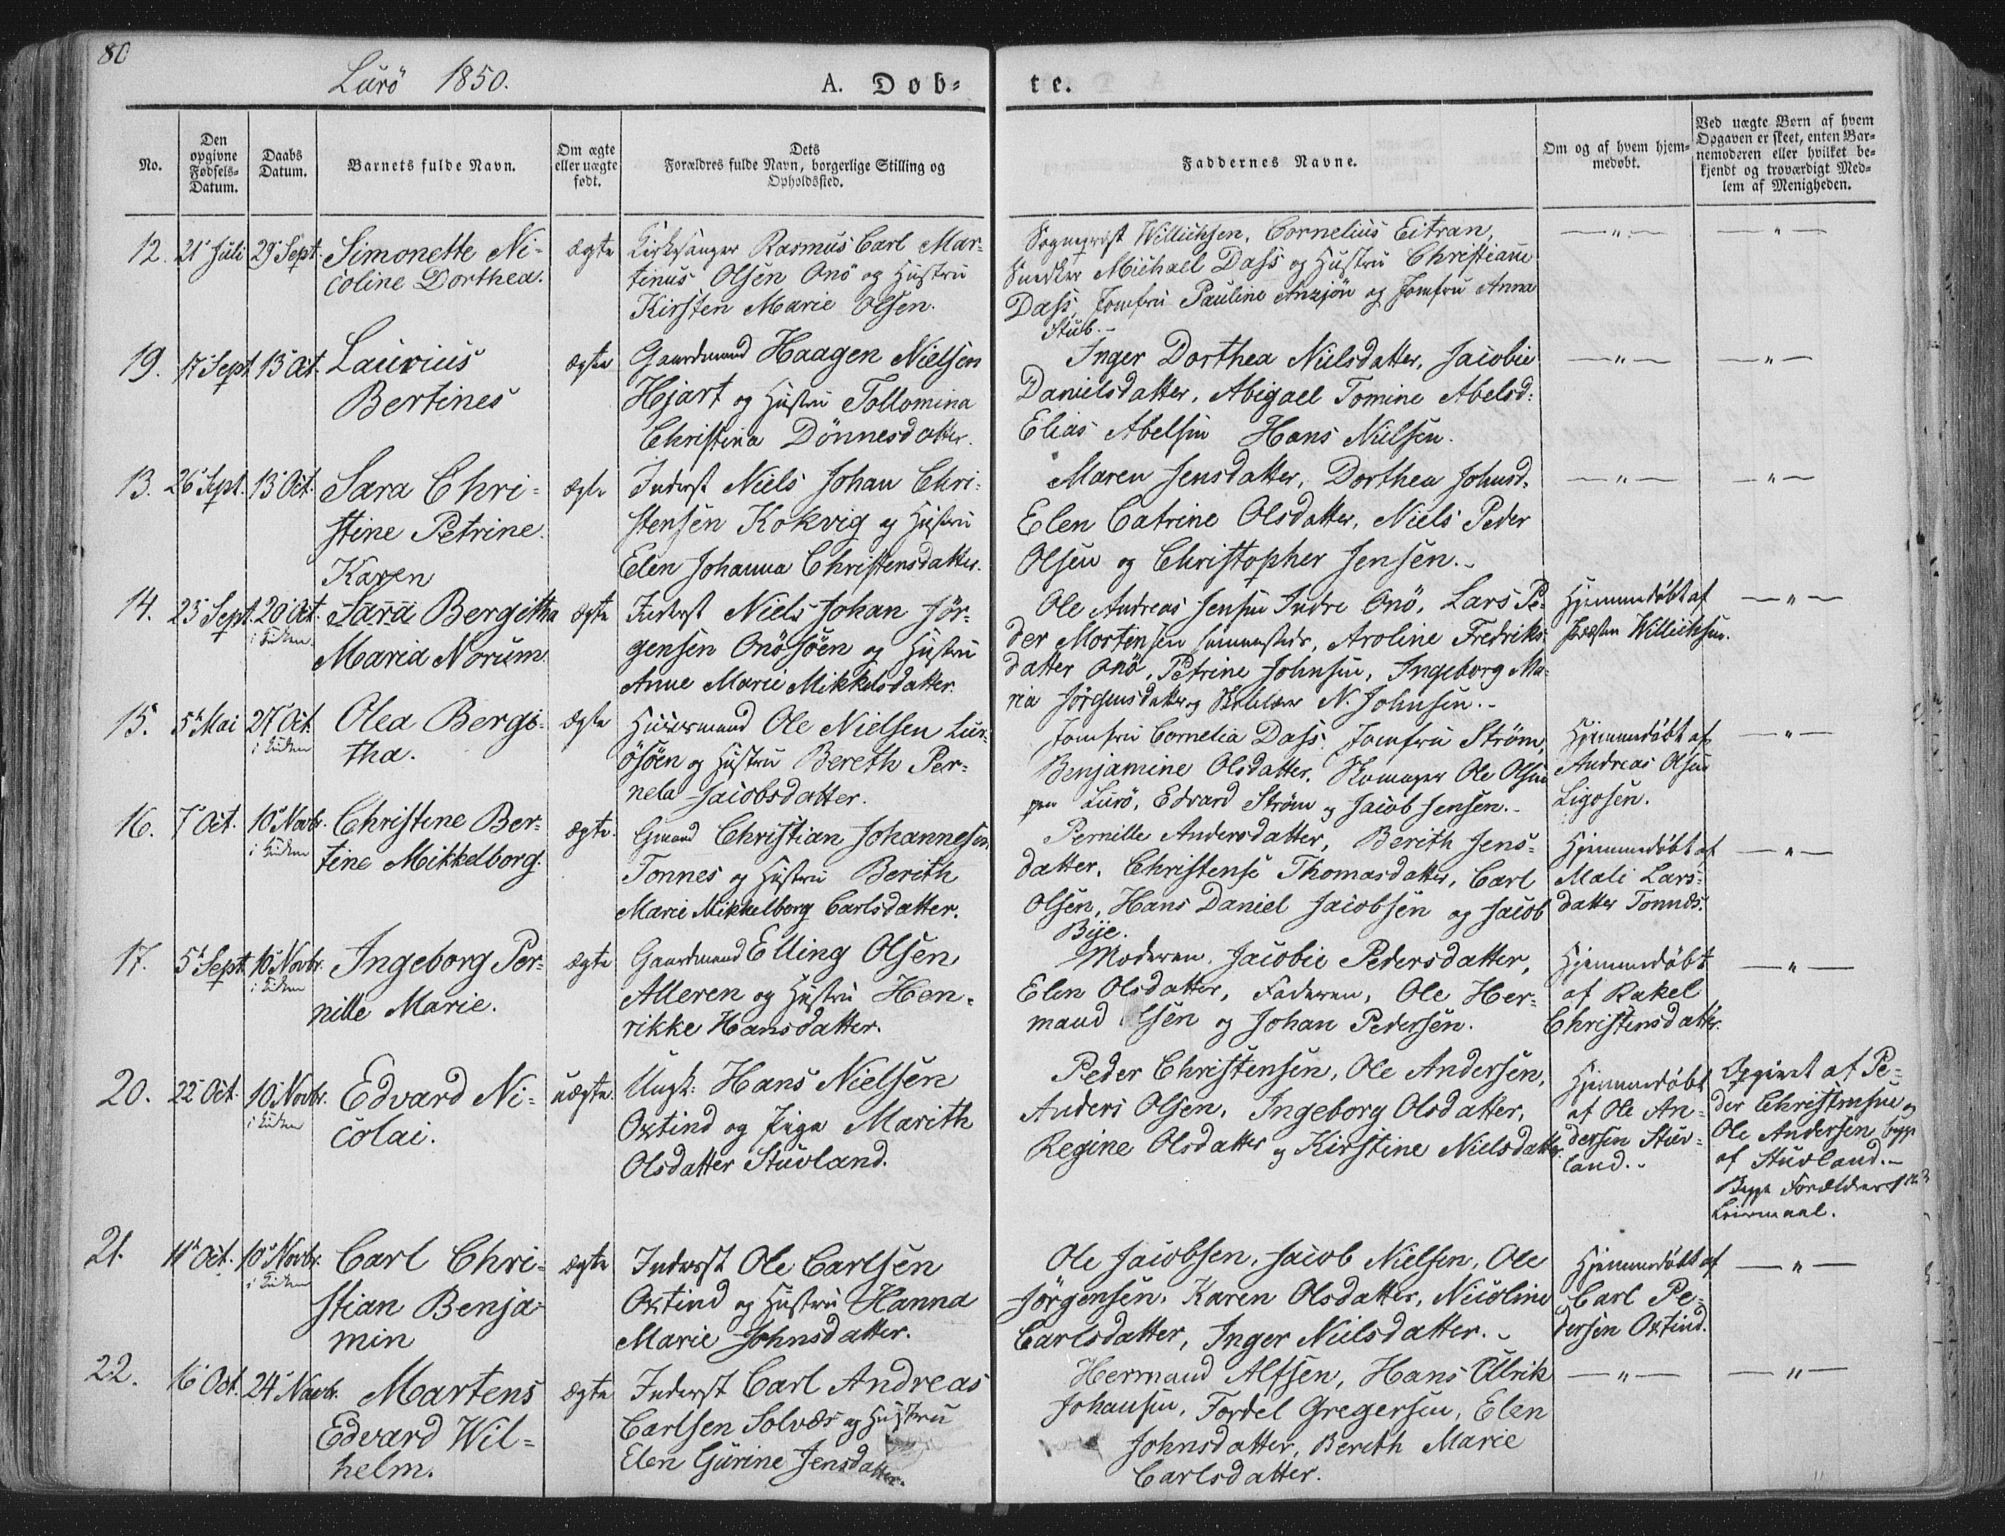 80
Lurö 1850.
A. Döb-
te.
No.
Den opgivne Fødsels-Datum.
Daabs Datum.
Barnets fulde Navn.
Om ægte eller uægte født.
Dets Forældres fulde Navn, borgerlige Stilling og Opholdssted.
Faddernes Navne.
Om og af hvem hjemmedøbt.
Ved uægte Børn af hvem Opgaven er skeet, enten Barnemoderen eller hvilket bekjendt og troværdigt Medlem af Menigheden.
12. 21 Juli 29 Sept. Simonette Ni-
coline Dorthea.
ægte
Kirkesanger Rasmus Carl Mar-
tinus Olsen Onö og Hustru
Kirsten Marie Olsen.
Sogneprest Willichsen, Cornelius Eitran,
Snedker Michael Dass og Hustru Christiane
Dass, Jomfru Pauline Anzjön og Jomfru Anna
Stub.-
—"— —"—
19. 17 Sept 13 Oct. Laurius
Bertines
ægte
Gaardmand Haagen Nielsen
Hjart og Hustru Tollomina
Christina Dönnesdatter.
Inger Dorthea Nielsdatter, Jacobie
Danielsdatter, Abigael Tomine Abelsd:
Elias Abelsen Hans Nielsen.
—"— —"—
13. 26 Sept. 13 Oct. Sara Chri-
stine Petrine
Karen
ægte
Inderst Niels Johan Chri-
stensen Kokvig og Hustru
Elen Johanna Christensdatter.
Maren Jensdatter, Dorthea Johnsd.
Elen Catrine Olsdatter, Niels Peder
Olsen og Christopher Jensen.-
—"— —"—
14. 25 Sept. 20 Oct.
i Kirken
Sara Bergitha
Maria Norum
ægte
Inderst Niels Johan Jör-
gensen Onösöen og Hustru
Anne Marie Mikkelsdatter.
Ole Andreas Jensen Indre Onö, Lars Pe-
der Mortensen sammesteds, Aroline Fredriks-
datter Onö, Petrine Johnsen, Ingeborg Ma-
ria Jörgensdatter og N. Johnsen.-
Hjemmedøbt af
Præsten Willichsen.
—"—
15. 5 Mai 27 Oct.
i Kirken
Olea Bergi-
tha.
ægte
Huusmand Ole Nielsen Lur-
ösöen og Hustru Bereth Per-
nela Jacobsdatter.
Jomfru Cornelia Dass. Jomfru Ström,
Benjamine Olsdatter. Ole Olsen
Lurö, Edvard Ström og Jacob Jensen.-
Hjemmedøbt af
Andreas Olsen
Ligosen.
—"—
16. 7 Oct. 10 Novbr.
i Kirken
Christine Ber-
tine Mikkelborg.
ægte.
Gmand Christian Johannesen
Tonnes og Hustru Berith
Marie Mikkelborg Carlsdatter.
Pernille Andersdatter, Berith Jens-
datter, Christense Thomasdatter, Carl
Olsen, Hans Daniel Jacobsen og Jacob
Bye.
Hjemmedøbt af
Mali Lars-
datter Tonnes.
—"—
17. 5 Sept 10 Novbr.
i Kirken
Ingeborg Per-
nille Marie.
ægte
Gaardmand Elling Olsen
Alleren og Hustru Hen-
rikke Hansdatter.
Moderen, Jacobie Pedersdatter,
Elen Olsdatter, Faderen, Ole Her-
mand Olsen og Johan Pedersen.
Hjemmedøbt
af Rakel
Christensdatter.
—"—
20. 22 Oct. 10 Novbr.
i Kirken
Edvard Ni-
colai.
uægte.
Ungk: Hans Nielsen
Oxtind og Pige Marith
Olsdatter Stuvland.
Peder Christensen, Ole Andersen,
Anders Olsen, Ingeborg Olsdatter,
Regine Olsdatter og Kirstine Nielsdatter.
Hjemmedøbt
af Ole An-
dersen Stuv-
land.-
Opgivet af Pe-
der Christensen og
Ole Andersen begge
af Stuvland.-
Begge Forældres 1ste
Leiermaal.
21. 11 Oct. 10 Novbr.
i Kirken
Carl Chri-
stian Benja-
min
ægte
Inderst Ole Carlsen
Oxtind og Hustru Hanna
Marie Johnsdatter.
Ole Jacobsen, Jacob Nielsen, Ole
Jörgensen, Karen Olsdatter, Nicoline
Carlsdatter, Inger Nielsdatter.-
Hjemmedøbt af
Carl Pe-
dersen Oxtind.
—"—
22. 16 Oct. 24 Novb. Martens
Edvard Wil-
helm.
ægte
Inderst Carl Andreas
Carlsen Solvær og Hustru
Elen Gurine Jensdatter.
Hermand Alfsen, Hans Ulrik
Johansen, Fordel Gregersen, Elen
Johnsdatter, Bereth Marie
Carlsdatter.
—"— —"—